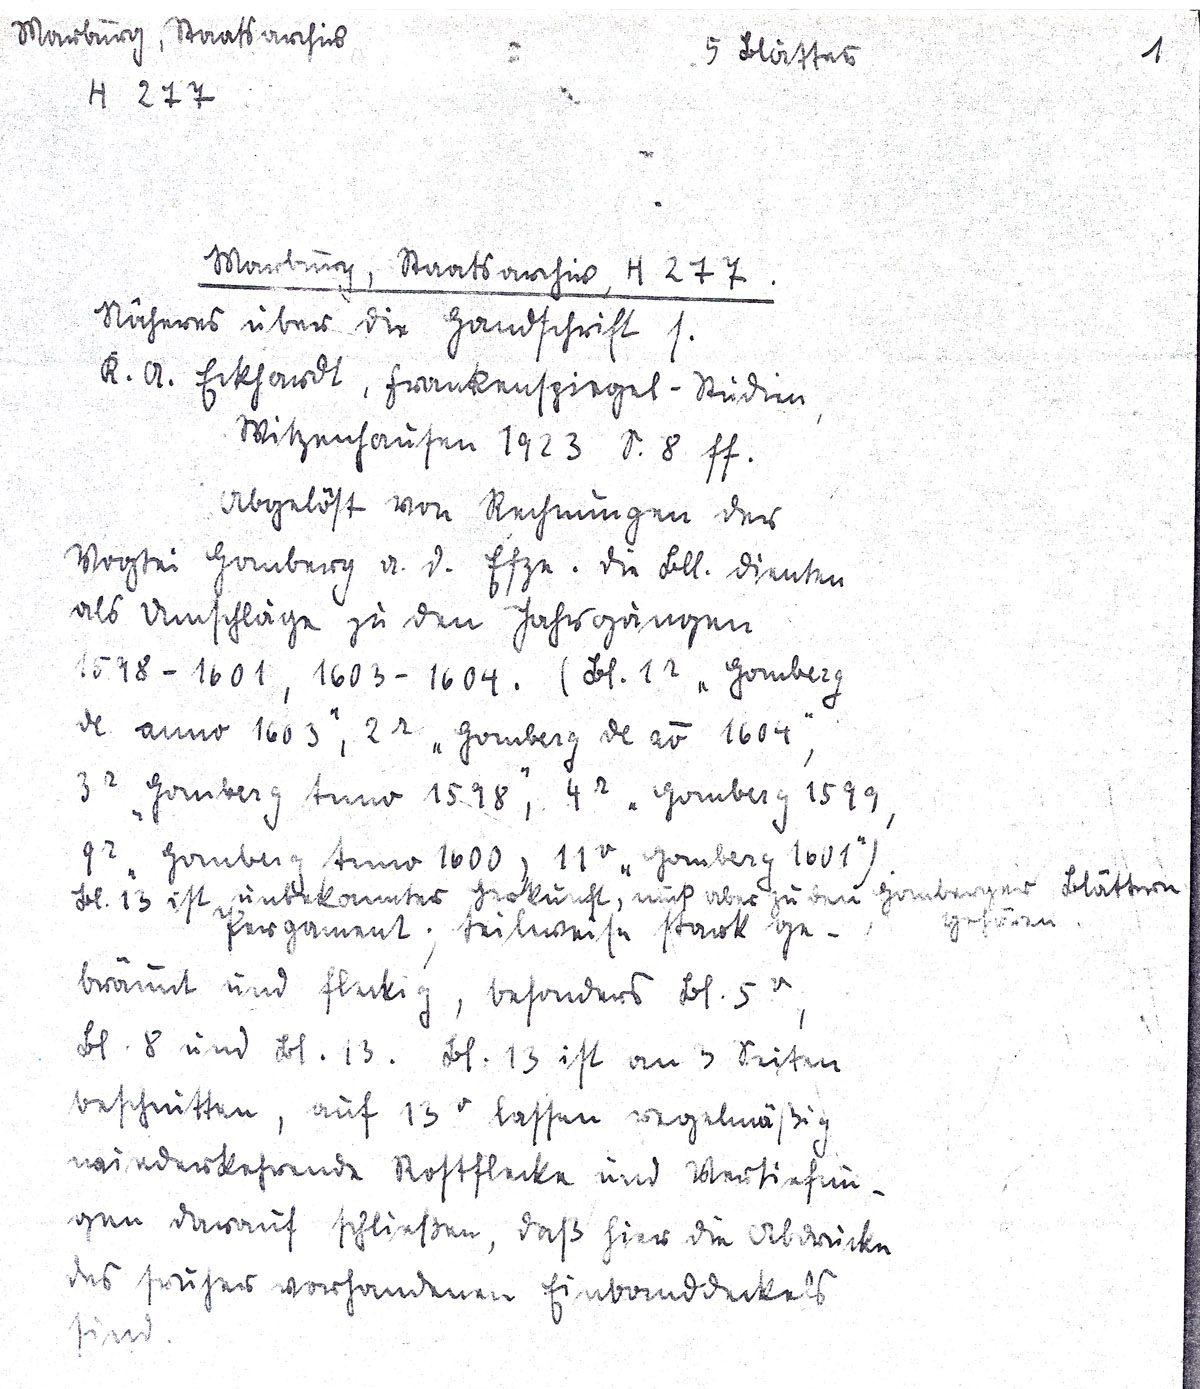 Marburg, Staatsarchiv 5 Blätter 1
H 277
Marburg, Staatsarchiv, H 277.
Näheres über die Handschrift s.
K. A. Eckhardt, Frankenspiegel-Studien,
Witzenhausen 1923 S. 8 ff.
Abgelöst von Rechnungen der
Vogtei Homberg a. d. Efze. Die Bll. dienten
als Umschläge zu den Jahrgängen
1598-1601, 1603-1604. (Bl. 1r „Homberg
de anno 1603", 2r „Homberg de ao̅ 1604",
3r „Homberg Anno 1598", 4r „Homberg 1599,
9r „Homberg Anno 1600, 11v „Homberg 1601")
Bl. 13 ist unbekannter Herkunft, muß aber zu den Homberger Blättern
gehören.
Pergament; teilweise stark ge-
bräunt und fleckig, besonders Bl. 5v,
Bl. 8 und Bl. 13. Bl. 13 ist an 3 Seiten
beschnitten, auf 13v lassen regelmäßig
wiederkehrende Rostflecke und Vertiefun-
gen darauf schließen, daß hier die Abdrücke
des früher vorhandenen Einbanddeckels
sind.